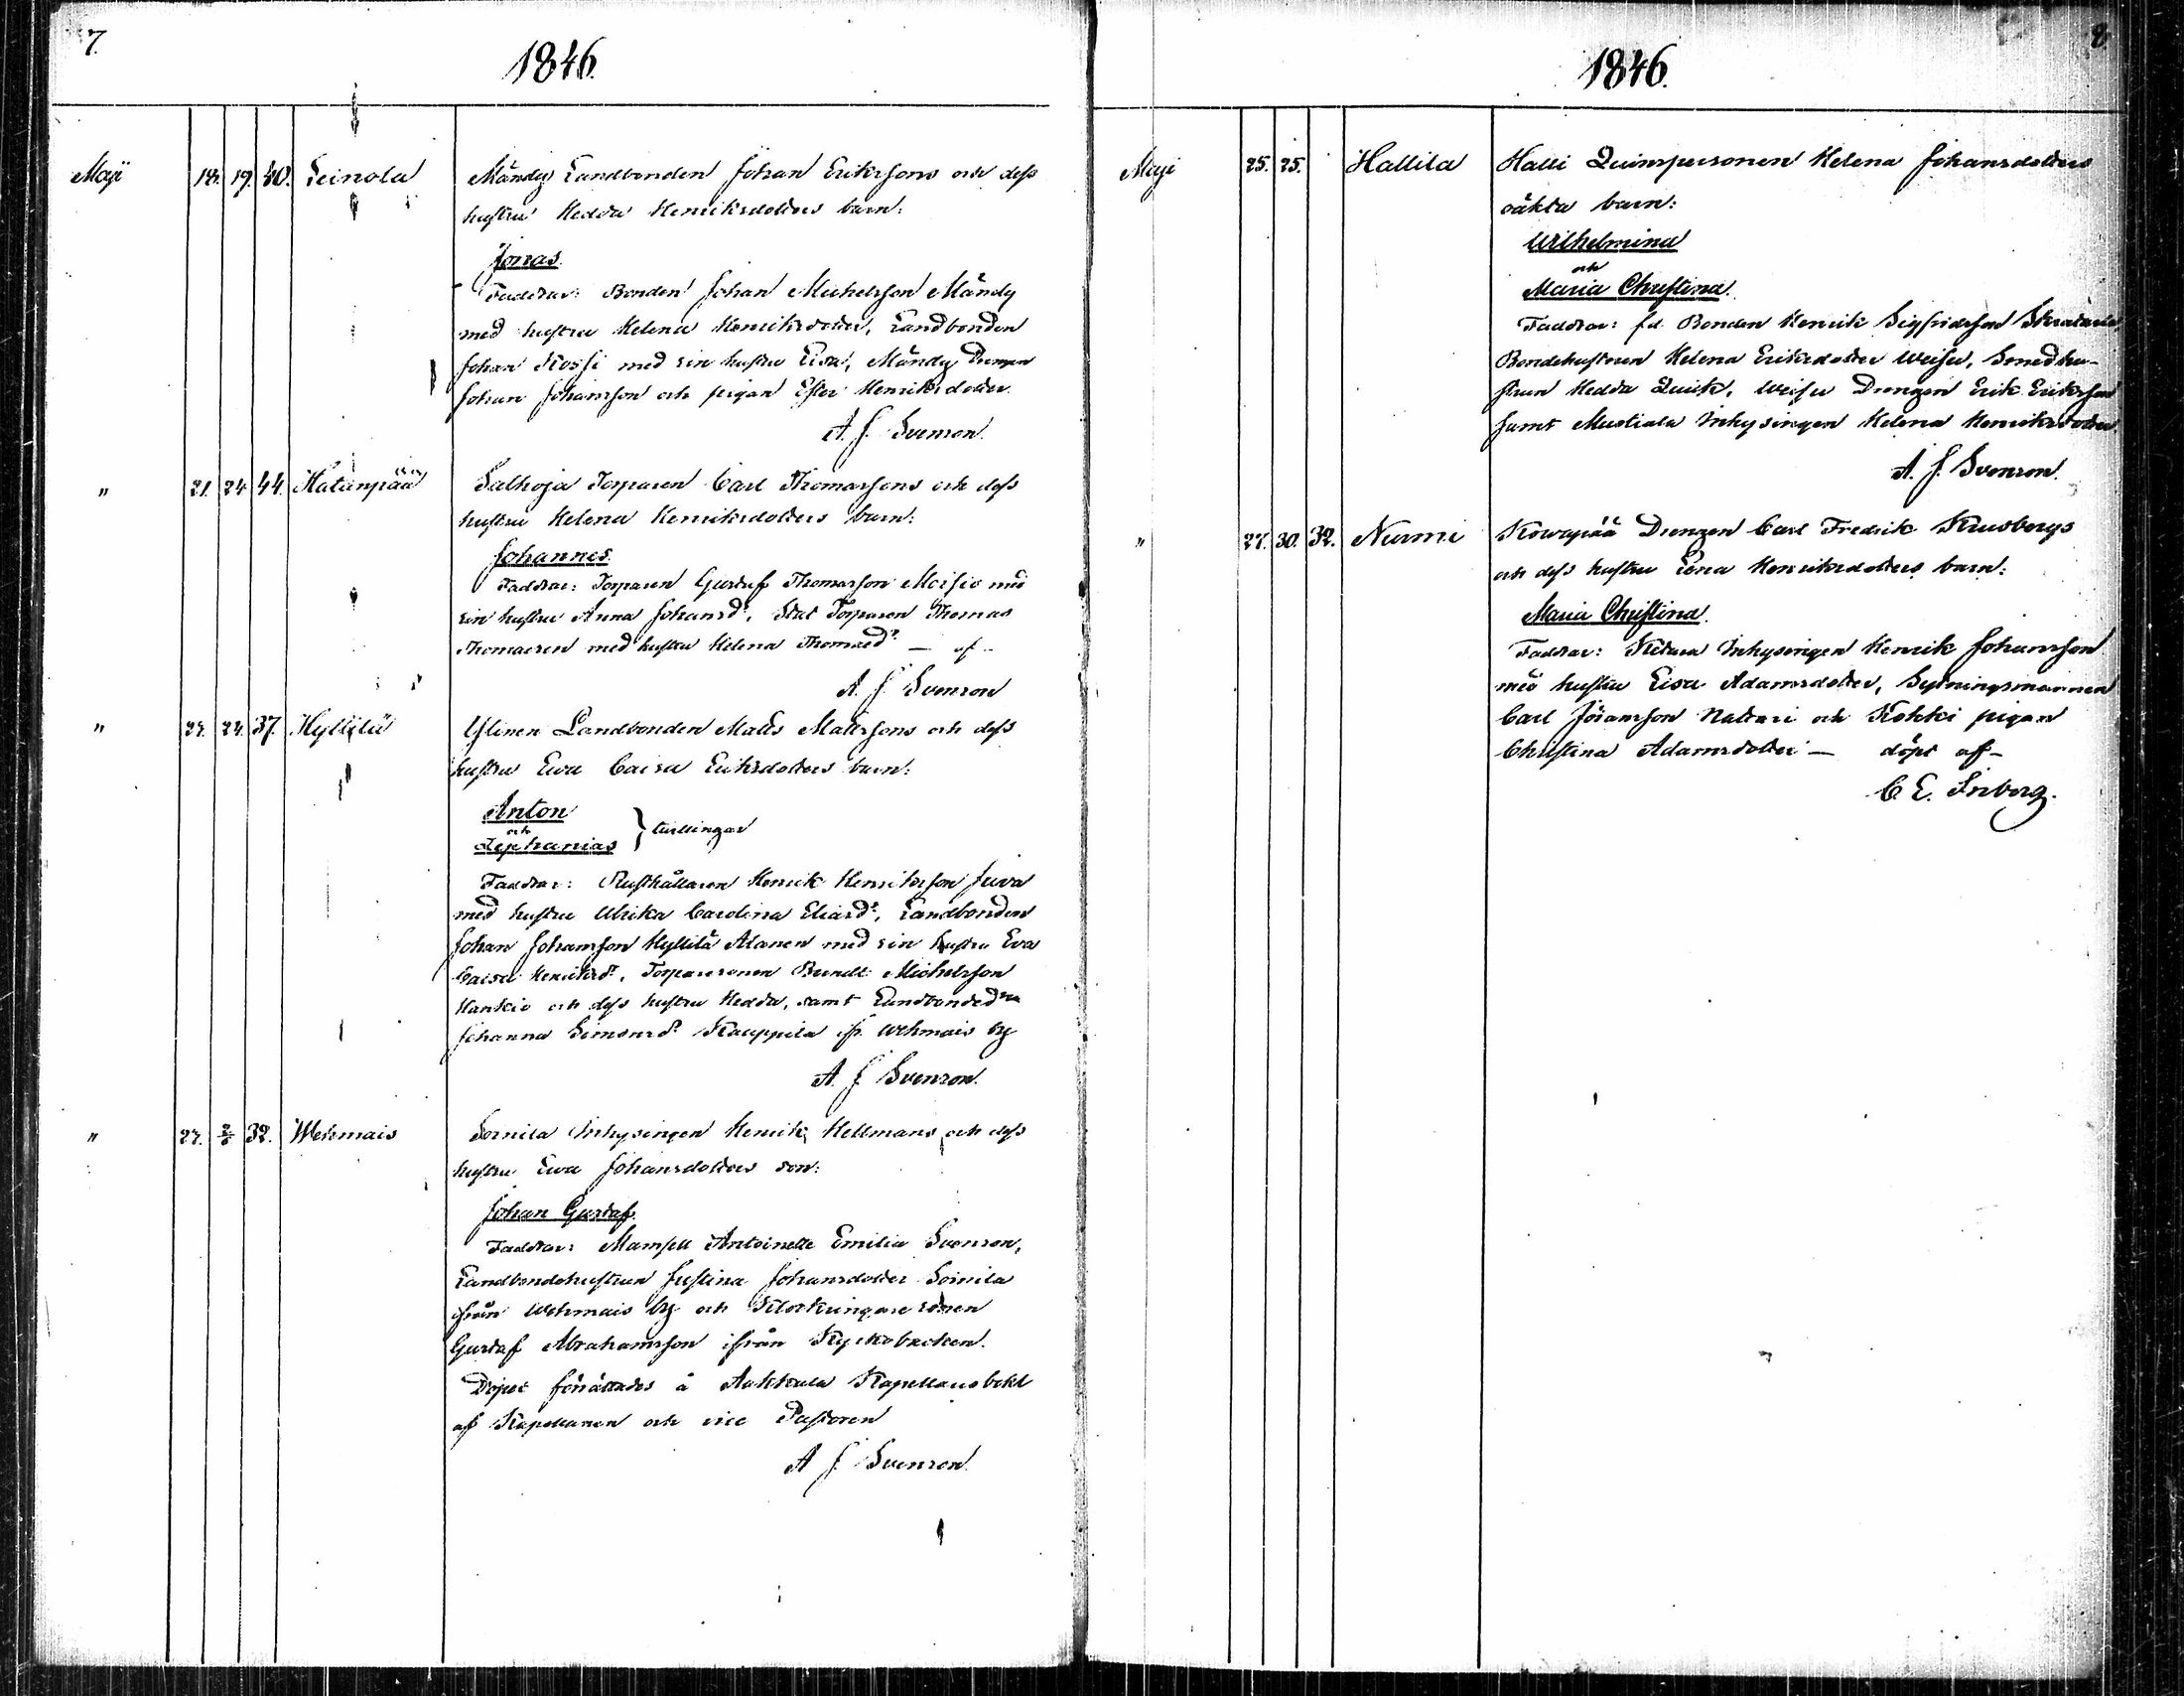 7.
1846.
Maji 18. 19. 40. Leinola Mändy Landbonden Johan Eriksons och dess
hustru Hedda Henriksdotters barn:
Jonas.
Faddrar: Bonden Johan Michelsson Mändy
med hustru Helena Henriksdotter, Landbonden
Johan Rossi med sin hustru Lisa, Mändy Drengen
Johan Johansson och pigan Ester Henriksdotter.
A. J. Svenson.
" 21. 24. 44. Hatanpää Salhoja Torparen Carl Thomassons och dess
hustru Helena Henriksdotters barn:
Johannes.
Faddrar: Torparen Gustaf Thomasson Moisio med
sin hustru Anna Johansdr. Torparen Thomas
Thomasson med hustru Helena Thomasdr — af —
A. J. Svenson
" 24. 37. Hyllilä Yllinen Landbonden Matts Mattssons och dess
hustru Ewa Caisa Eriksdotters barn:
Anton
och
Zephanias } tvillingar
Faddrar: Rusthållaren Henrik Henriksson Juva
med hustru Ulrika Carolina Eliasdr, Landbonden
Johan Johansson Hyllilä Alanen med sin hustru Eva
Caisa Henriksdr, Torparesonen Michelsson
Hankio och dess hustru Hedda, samt
Johanna Simonsdr Kauppila ifr. Wehmais By
A. J. Svenson.
" 32. Wehmais Soinila Inhysingen Henrik Hellmans och dess
hustru Ewa Johansdotters son:
Johan Gustaf.
Faddrar: Mamsell Antoinette Emilia Svenson,
Landbondehustrun Justina Johansdotter Soinila
ifrån Wehmais By och Klockringare sonen
Gustaf Abrahamsson ifrån Kyrkobacken.
Dopet förrättades å Kapellansbohl
af Kapellanen och vice Pastoren
A J. Svenson.
8.
1846.
Maji 25. 25. Hallila Halli Qvinspersonen Helena Johansdotters
oäkta barn:
Wilhelmina
och
Maria Christina.
Faddrar: fd. Bonden Henrik Sigfridsson
Bondehustrun Helena Eriksdotter Weisu, Smedhu-
strun Hedda Quick, Weisu Drengen Erik Eriksson
samt Mustiala Inhysingen Helena Henriksdotter.
A. J. Svenson.
" 27. 30. 32. Nurmi Kowapää Drengen Carl Fredrik Krusbergs
och dess hustru Lena Henriksdotters barn:
Maria Christina.
Faddrar: Inhysingen Henrik Johansson
med hustru Lisa Adamsdotter, Sytningsmannen
Carl Nattari och Kokki pigan
Christina Adamsdotter — döpt af —
C. E. Inberg.